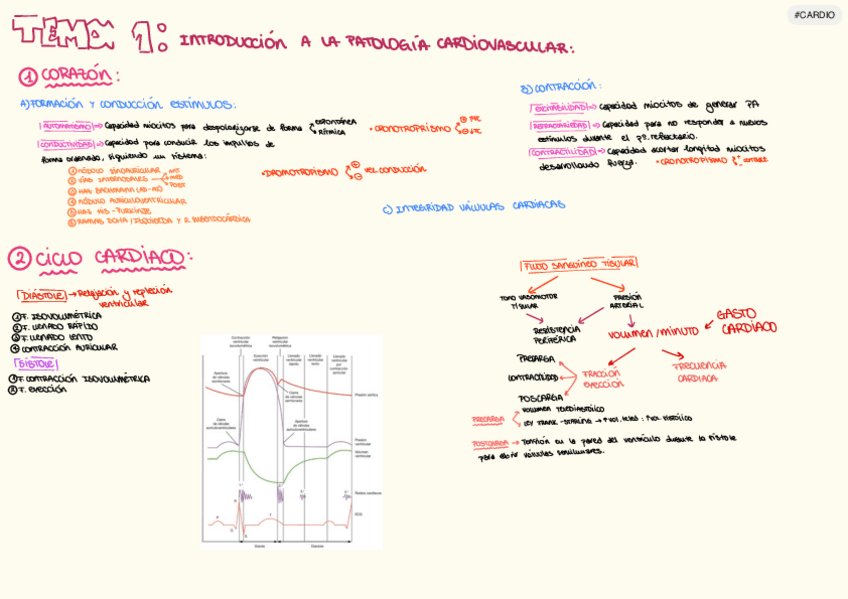 #CARDIO
TEMA 1: INTRODUCCIÓN A LA PATOLOGÍA CARDIOVASCULAR:
① CORAZÓN:
A) FORMACIÓN Y CONDUCCIÓN ESTÍMULOS:
AUTOMATISMO → Capacidad miocitos para despolarizarse de forma
ESPONTÁNEA
RÍTMICA
• CRONOTROPRISMO
⊕ ↑FC
⊖ ↓FC
CONDUCTIVIDAD → Capacidad para conducir los impulsos de
forma ordenada, siguiendo un sistema:
① NÓDULO SINOAURICULAR
② VÍAS INTERNODALES
ANT
MED
POST
③ HAZ BACHMANN
④ NÓDULO AURICULOVENTRICULAR
⑤ HAZ HIS-PURKINJE
⑥ RAMAS DCHA/IZQUIERDA Y F. SUBENDOCÁRDICA
• DROMOTROPISMO
⊕
⊖
VEL CONDUCCIÓN
B) CONTRACCIÓN:
EXCITABILIDAD → Capacidad miocitos de generar PA
REFRACTARIEDAD → Capacidad para no responder a nuevos
estímulos durante el pº. refractario.
CONTRACTILIDAD → Capacidad acortar longitud miocitos
desarrollando fuerza.
• CRONOTROPISMO
C) INTEGRIDAD VÁLVULAS CARDÍACAS
② CICLO CARDÍACO:
DIÁSTOLE → Relajación y repleción
ventricular
① F. ISOVOLUMÉTRICA
② F. LLENADO RÁPIDO
③ F. LLENADO LENTO
④ CONTRACCIÓN AURICULAR
SÍSTOLE
① F. CONTRACCIÓN ISOVOLUMÉTRICA
② F. EYECCIÓN
Contracción ventricular isovolumétrica
Relajación ventricular isovolumétrica
Eyección ventricular
Llenado ventricular rápido
Llenado ventricular lento
Llenado ventricular por contracción auricular
Apertura de válvulas semilunares
Cierre de válvulas semilunares
Presión aórtica
Cierre de válvulas auriculoventriculares
Apertura de válvulas auriculoventriculares
Presión ventricular
Volumen ventricular
Ruidos cardíacos
ECG
P
R
T
Sístole
Diástole
FLUJO SANGUÍNEO TISULAR
TONO VASOMOTOR
TISULAR
PRESIÓN
ARTERIAL
RESISTENCIA
PERIFÉRICA
VOLUMEN/MINUTO
GASTO
CARDÍACO
PRECARGA
CONTRACTILIDAD
POSCARGA
FRACCIÓN
EYECCIÓN
FRECUENCIA
CARDIACA
PRECARGA
VOLUMEN TELEDIASTÓLICO
LEY FRANK-STARLING →
POSTCARGA → Tensión en la pared del ventrículo durante la sístole
para abrir válvulas semilunares.